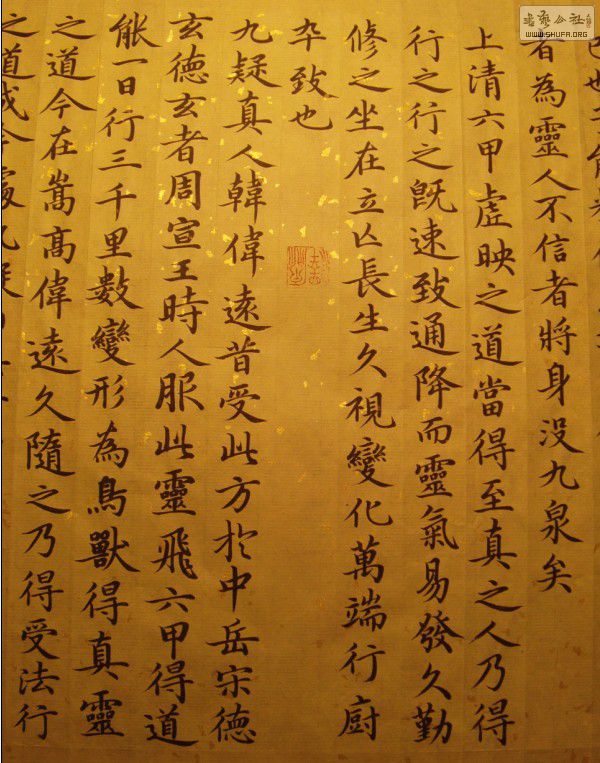 者為靈人不信者將身没九泉矣
上清六甲虛映之道當得至真之人乃得
行之行之旣速致通降而靈氣易發久勤
修之坐在立亾長生久視變化萬端行廚
卒致也
九疑真人韓偉遠昔受此方於中岳宋德
玄德玄者周宣王時人服此靈飛六甲得道
能一日行三千里數變形為鳥獸得真靈
之道今在嵩髙偉遠久隨之乃得受法行
之道成今處九疑
書藝公社
WWW.SHUFA.ORG